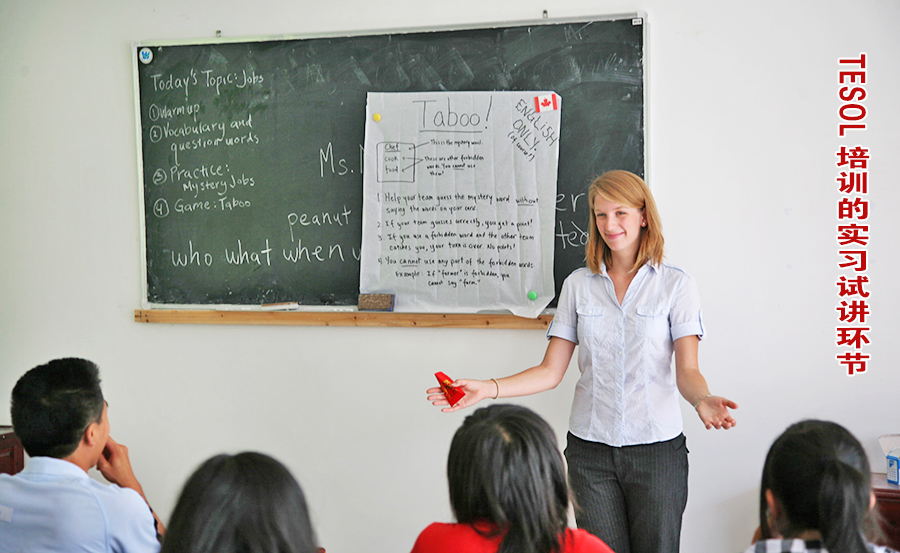 Today's Topic: Jobs
① Warm up
② Vocabulary and
question words
③ Practice:
Mystery Jobs
④ Game: Taboo
Ms.
peanut
who what when
Taboo!
ENGLISH
ONLY
Chef
cook
food
This is the mystery word.
These are other forbidden
words. You cannot use
them!
1. Help your team guess the mystery word without
saying the word on your card.
2. If your team guesses correctly, you get a point!
3. If you use a forbidden word and the other team
catches you, your turn is over. No points!
4. You cannot use any part of the forbidden words.
Example: If "farmer" is forbidden, you
cannot say "farm."
TESOL 培训的实习试讲环节